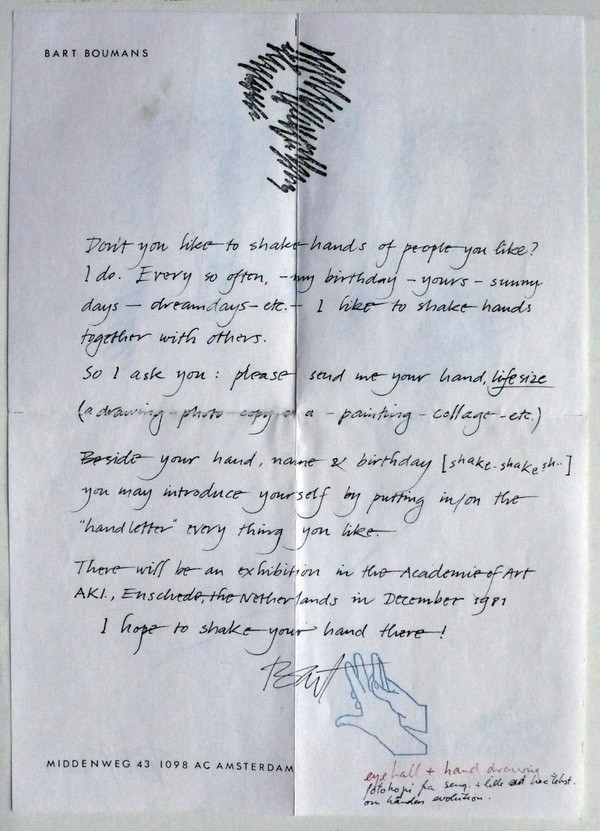 BART BOUMANS
Don't you like to shake hands of people you like?
I do. Every so often, - my birthday - yours - sunny
days - dreamdays - etc. - I like to shake hands
together with others.
So I ask you: please send me your hand, life size
(a drawing - photo copy - a - painting - collage - etc.)
Beside your hand, name & birthday [shake-shake sh..]
you may introduce yourself by putting in/on the
"handletter" every thing you like.
There will be an exhibition in the Academie of Art
AKI., Enschede, the Netherlands in December 1981
I hope to shake your hand there!
Bart
MIDDENWEG 43 1098 AC AMSTERDAM
eyeball + hand drawing
fotokopi fra + lille
om håndens evolution.